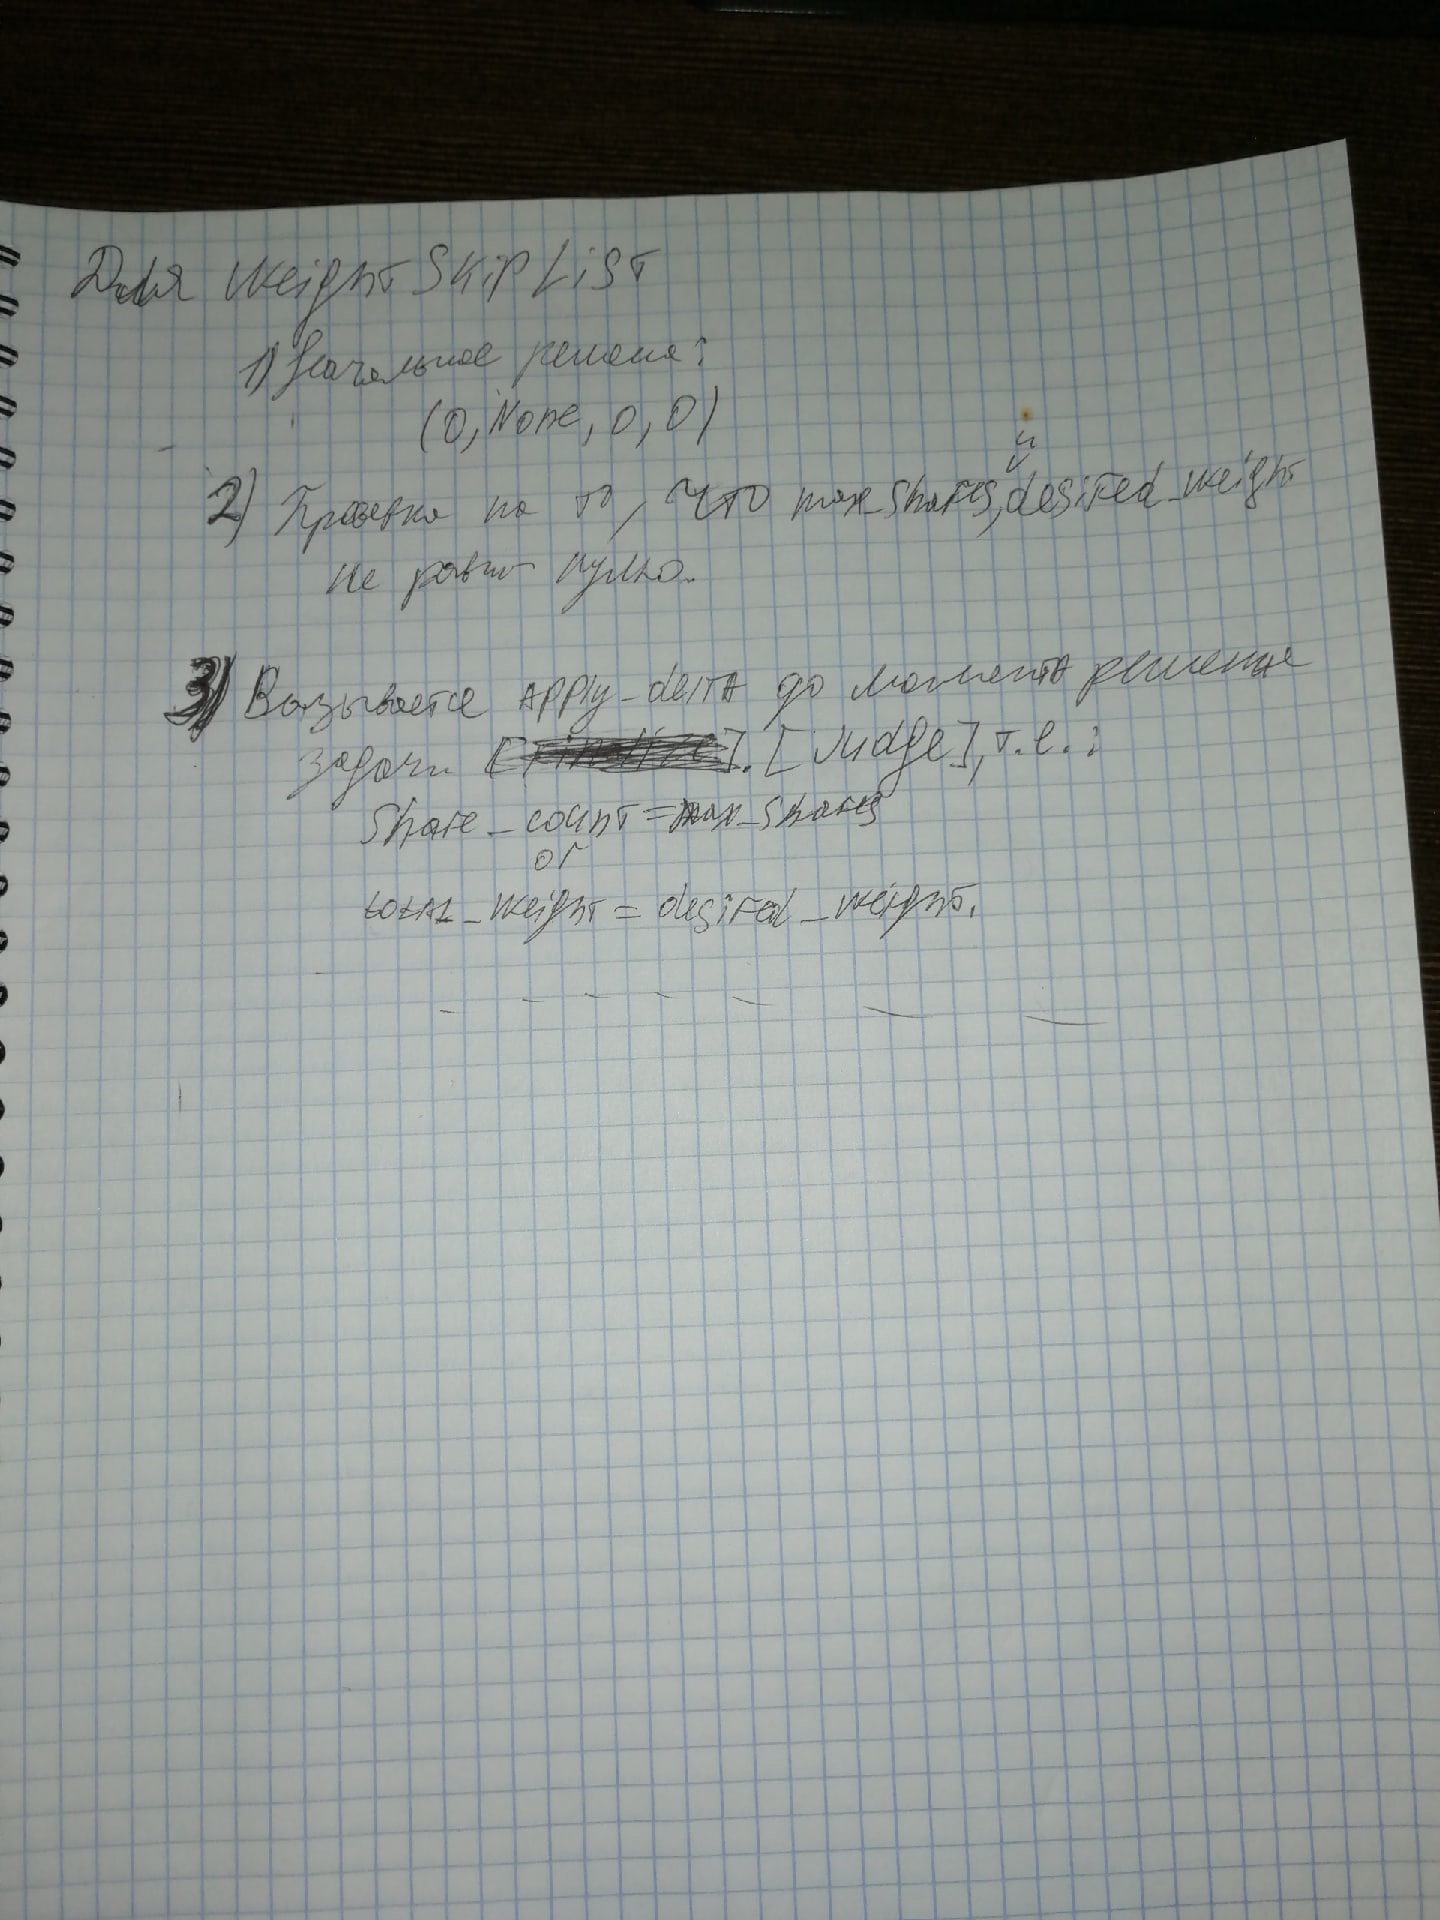 Для Weight Skip List
1) Начальное решение:
(0, None, 0, 0)
и
2) Проверка на то, что max_shares, desired_weight
не равны нулю.
3) Вызывается apply_delta до момента решения
задачи [Judge], т.е.:
Share_count = max_shares
or
total_weight = desired_weight.